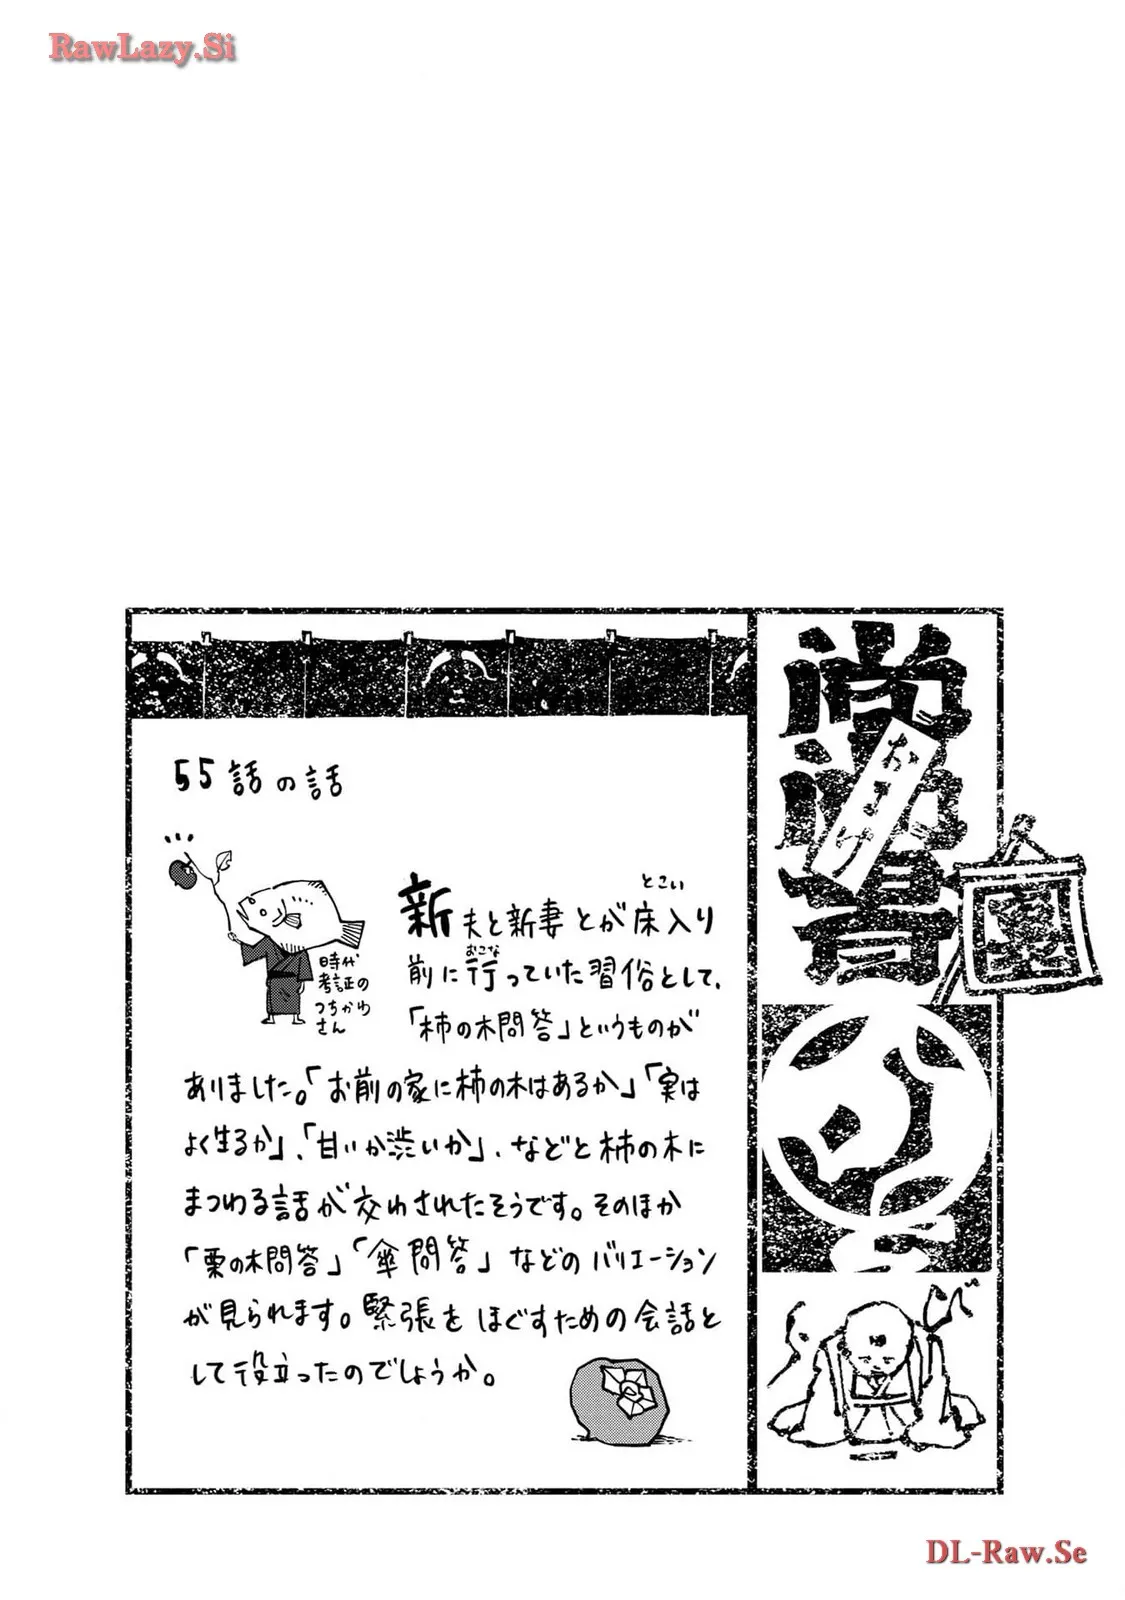 RawLazy.Si
55話の話
新夫と新妻とが床入り
とこい
前に行っていた習俗として、
おこな
「柿の木問答」というものが
ありました。「お前の家に柿の木はあるか」「実は
よく生るか」、「甘いか渋いか」、などと柿の木に
まつわる話が交わされたそうです。そのほか
「栗の木問答」「傘問答」などのバリエーション
が見られます。緊張をほぐすための会話と
して役立ったのでしょうか。
時代
考証の
つちかわ
さん
おまけ
DL-Raw.Se